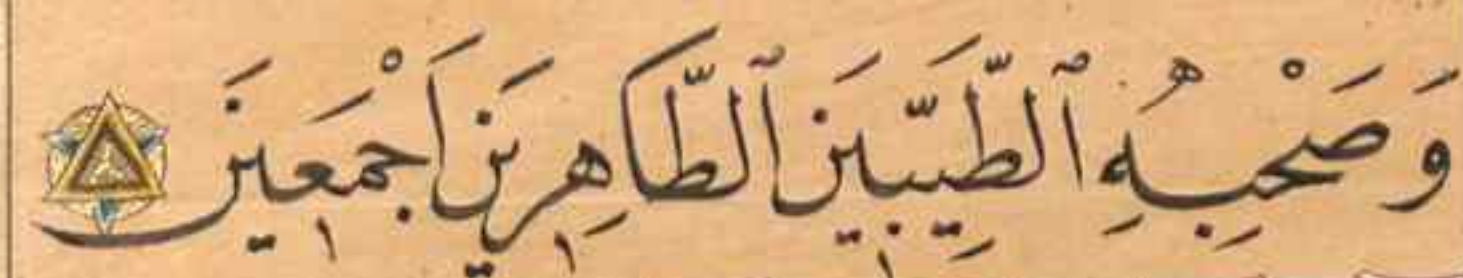 وَصَحْبِهِ ٱلطَّيِّبِينَ ٱلطَّاهِرِينَ اَجْمَعِينَ